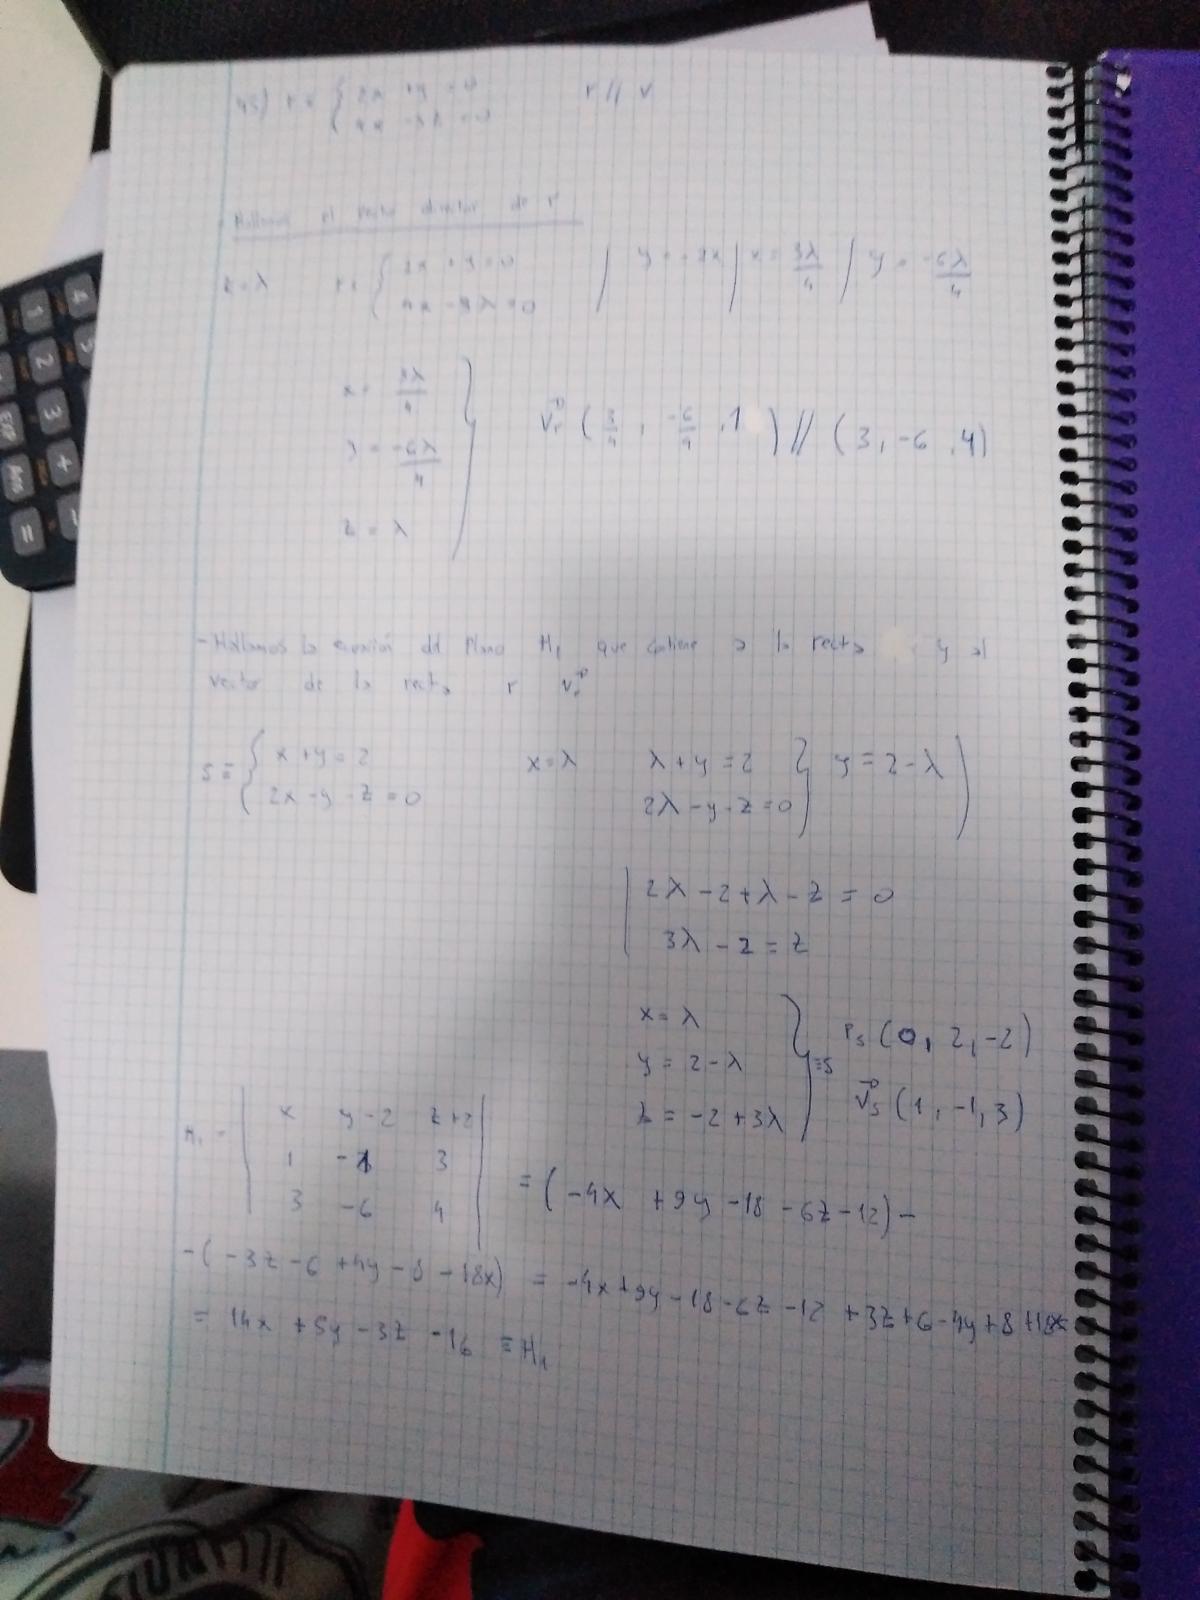 43) r ≡ { 2x + y = 0 r // v
4x - 3z = 0
- Hallamos el vector director de r
z = λ r ≡ { 2x + y = 0 | y = -2x | x = 3λ/4 | y = -6λ/4
4x - 3λ = 0
x = 3λ/4
y = -6λ/4
z = λ
v⃗r (3/4, -6/4, 1) // (3, -6, 4)
- Hallamos la ecuación del Plano π1 que contiene a la recta y al
vector de la recta r v⃗r
s ≡ { x + y = 2 x = λ λ + y = 2 } y = 2 - λ
2x - y - z = 0 2λ - y - z = 0
2λ - 2 + λ - z = 0
3λ - 2 = z
x = λ
y = 2 - λ
z = -2 + 3λ
≡ s
Ps (0, 2, -2)
v⃗s (1, -1, 3)
π1 = | x y - 2 z + 2 |
1 -1 3
3 -6 4
= (-4x + 9y - 18 - 6z - 12) -
- (-3z - 6 + 4y - 8 - 18x) = -4x + 9y - 18 - 6z - 12 + 3z + 6 - 4y + 8 + 18x
= 14x + 5y - 3z - 16 ≡ π1
4
1
2
5
3
EXP
+
Ans
-
=